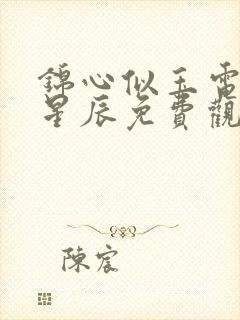 錦心似玉電
星辰免費觀
陳宸